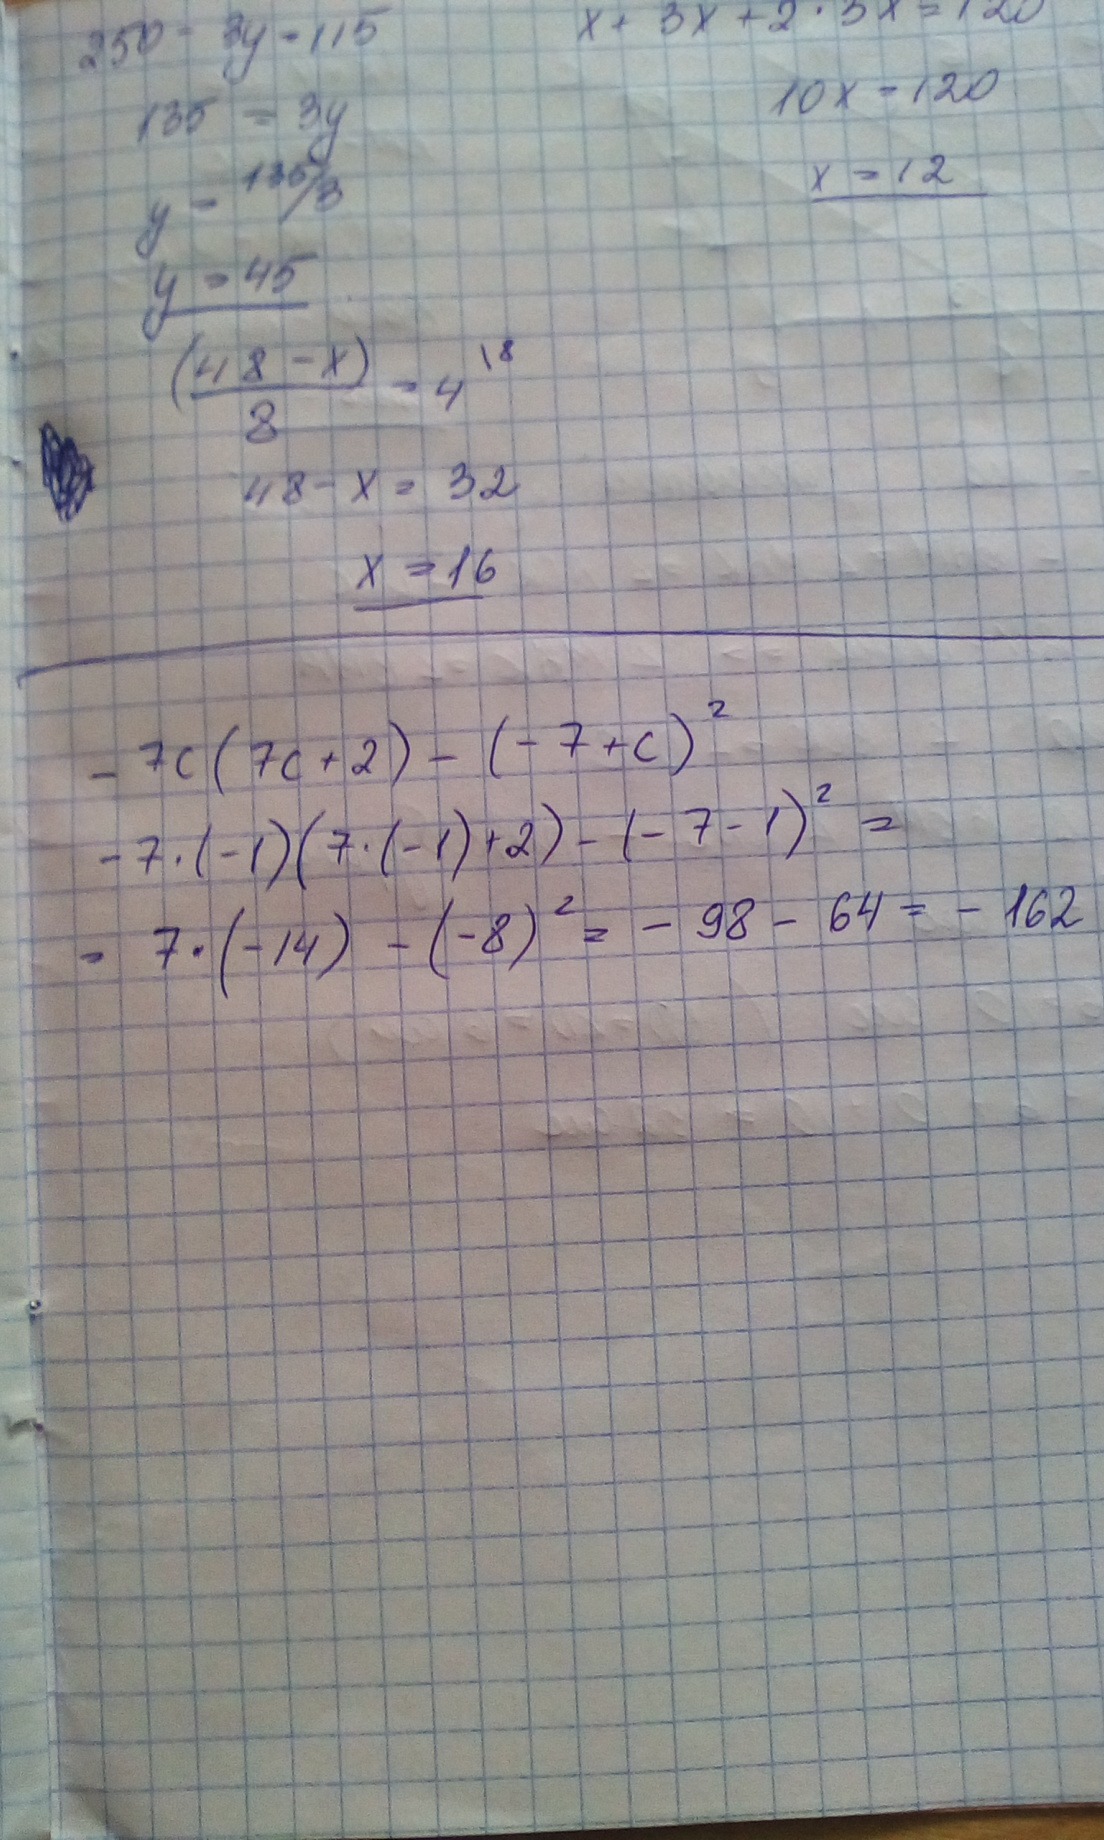 250 - 3y = 115
135 = 3y
y = 135/3
y = 45
x + 3x + 2 · 3x = 120
10x = 120
x = 12
(48 - x)/8 = 4 \8
48 - x = 32
x = 16
- 7c (7c + 2) - (-7 + c)²
- 7 · (-1)(7 · (-1) + 2) - (-7 - 1)² =
= 7 · (-14) - (-8)² = - 98 - 64 = - 162